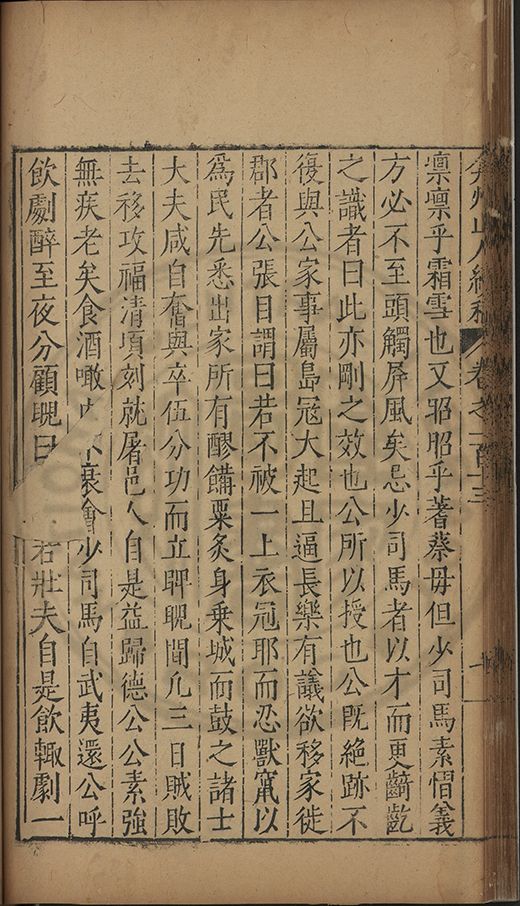 弇州山人續稿 卷之一百十三
凛凛乎霜雪也又昭昭乎蓍蔡毋但少司馬素慴義
方必不至頭觸屏風矣忌少司馬者以才而更齮齕
之識者曰此亦剛之效也公所以授也公旣絶跡不
復與公家事屬島冦大起且逼長樂有議欲移家徙
郡者公張目謂曰若不被一上衣冠耶而忍獸竄以
爲民先悉出家所有醪饎粟炙身乗城而鼓之諸士
大夫咸自奮與卒伍分功而立睥睨間凢三日賊敗
去移攻福清頃刻就屠邑人自是益歸德公公素強
無疾老矣食酒噉 不衰會少司馬自武夷還公呼
飲劇醉至夜分顧睨曰 若壯夫自是飲輙劇一